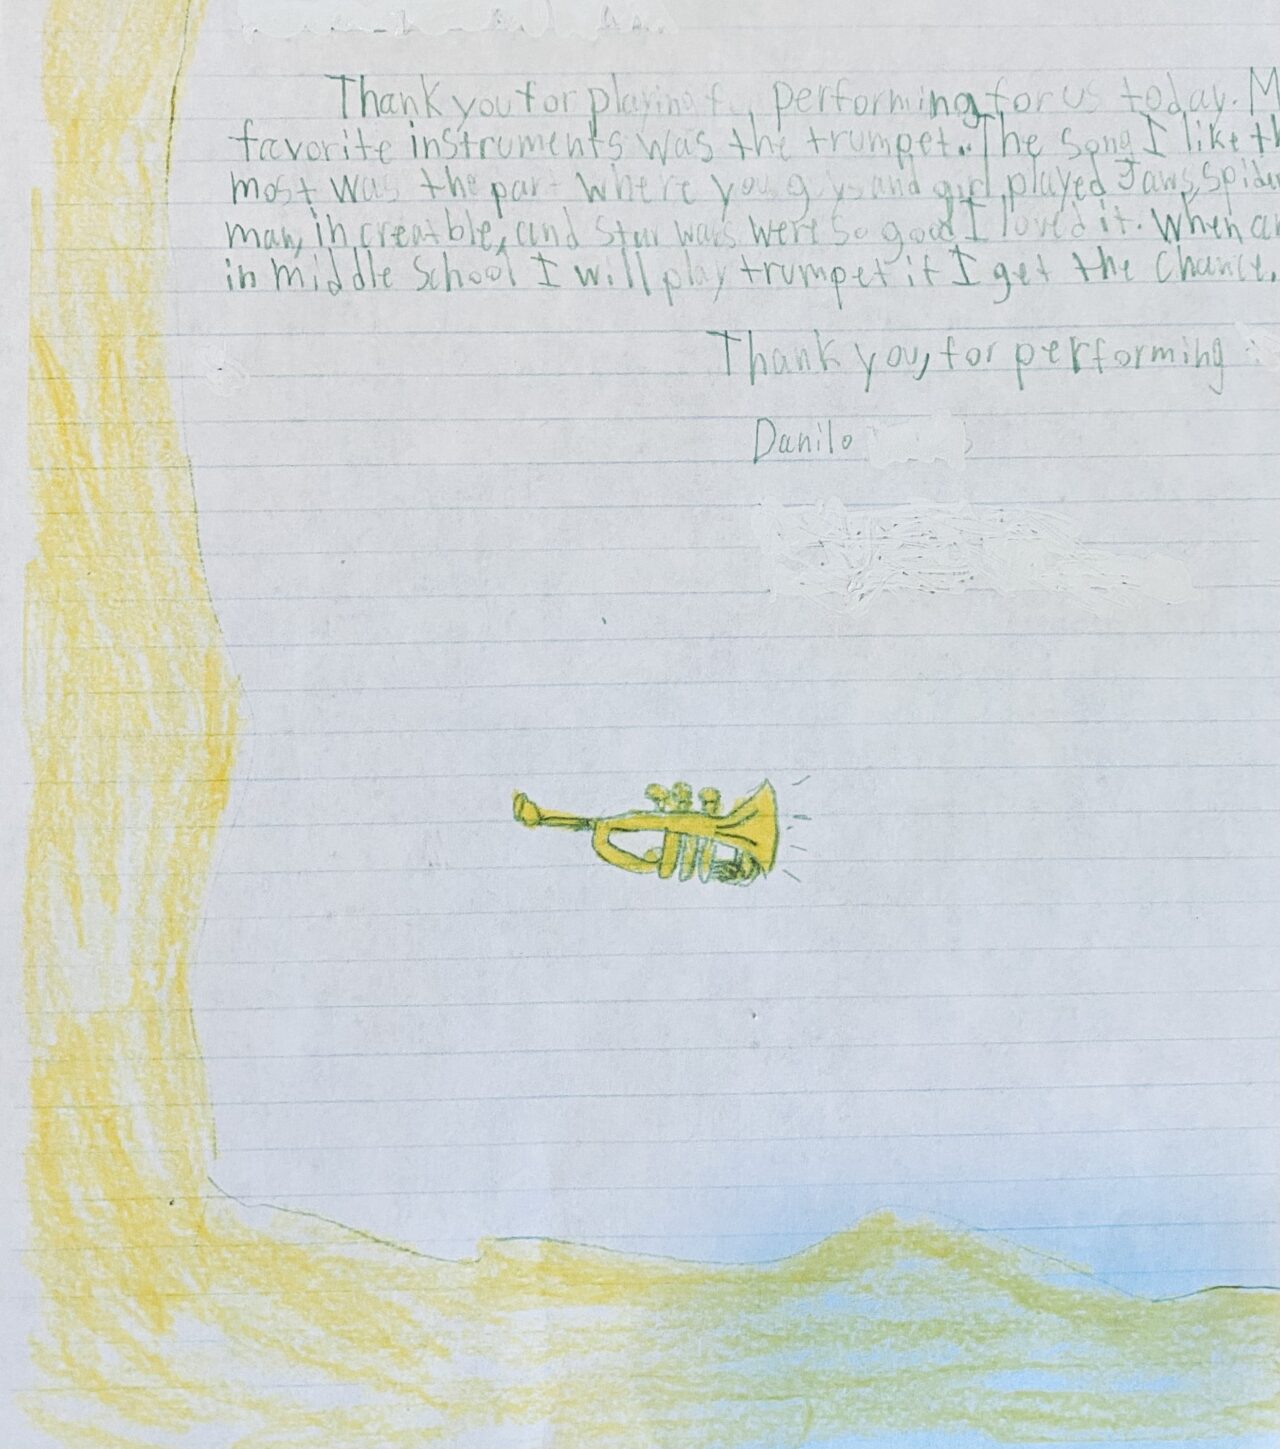 Thank you for playing performing for us today. M
favorite instruments was the trumpet. The song I like th
most was the part where you guys and girl played Jaws, Spider
man, in creatble, and Star wars were so good I loved it. When a
in middle school I will play trumpet if I get the chance.
Thank you, for performing
Danilo